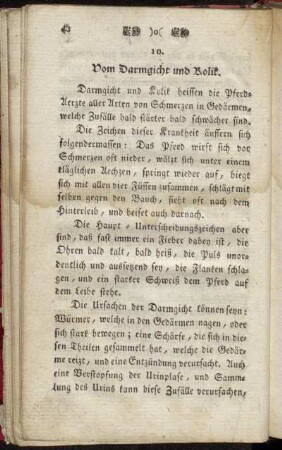 )o(
10.
Vom Darmgicht und Kolik.
Darmgicht und Kolik heissen die Pferd-
Aerzte aller Arten von Schmerzen in Gedärmen,
welche Zufälle bald stärker bald schwächer sind.
Die Zeichen dieser Krankheit äussern sich
folgendermassen: Das Pferd wirft sich vor
Schmerzen oft nieder, wälzt sich unter einem
kläglichen Aechzen, springt wieder auf, biegt
sich mit allen vier Füssen zusammen, schlägt mit
selben gegen den Bauch, sieht oft nach dem
Hinterleib, und beiset auch darnach.
Die Haupt, Unterscheidungszeichen aber
sind, daß fast immer ein Fieber dabey ist, die
Ohren bald kalt, bald heiß, die Puls unor-
dentlich und aussetzend sey, die Flanken schla-
gen, und ein starker Schweiß dem Pferd auf
dem Leibe stehe.
Die Ursachen der Darmgicht können seyn:
Würmer, welche in den Gedärmen nagen, oder
sich stark bewegen; eine Schärfe, die sich in die-
sen Theilen gesammelt hat, welche die Gedär-
me reizt, und eine Entzündung verursacht. Auch
eine Verstopfung der Urinblase, und Samm-
lung des Urins kann diese Zufälle verursachen,